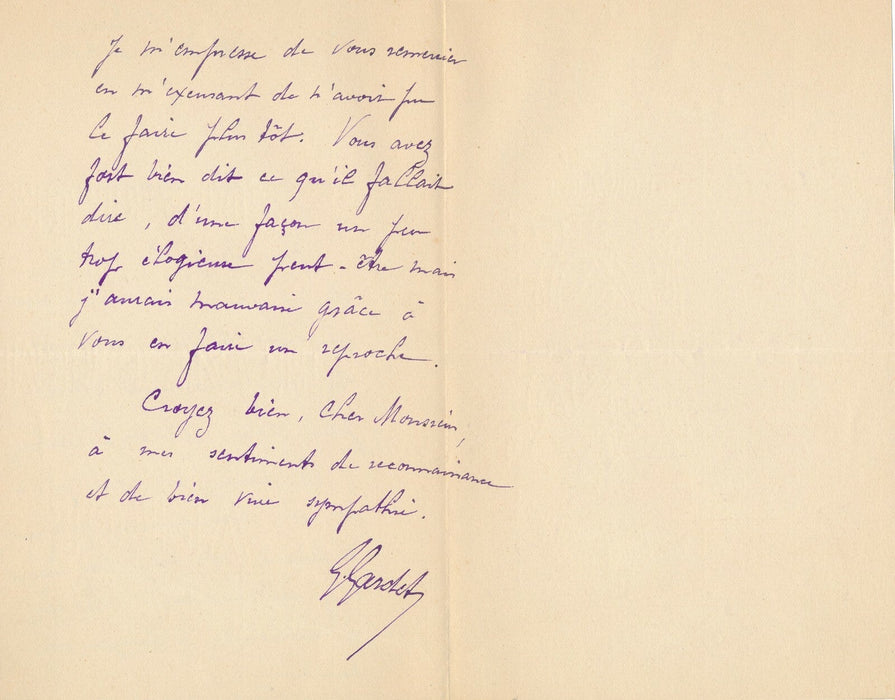 Je m'empresse de vous remercier
en m'excusant de n'avoir pu
le faire plus tôt. Vous avez
fort bien dit ce qu'il fallait
dire, d'une façon un peu
trop élogieuse peut-être mais
j'aurais mauvaise grâce à
vous en faire un reproche.
Croyez bien, cher Monsieur,
à mes sentiments de reconnaissance
et de bien vive sympathie.
G. Gardet